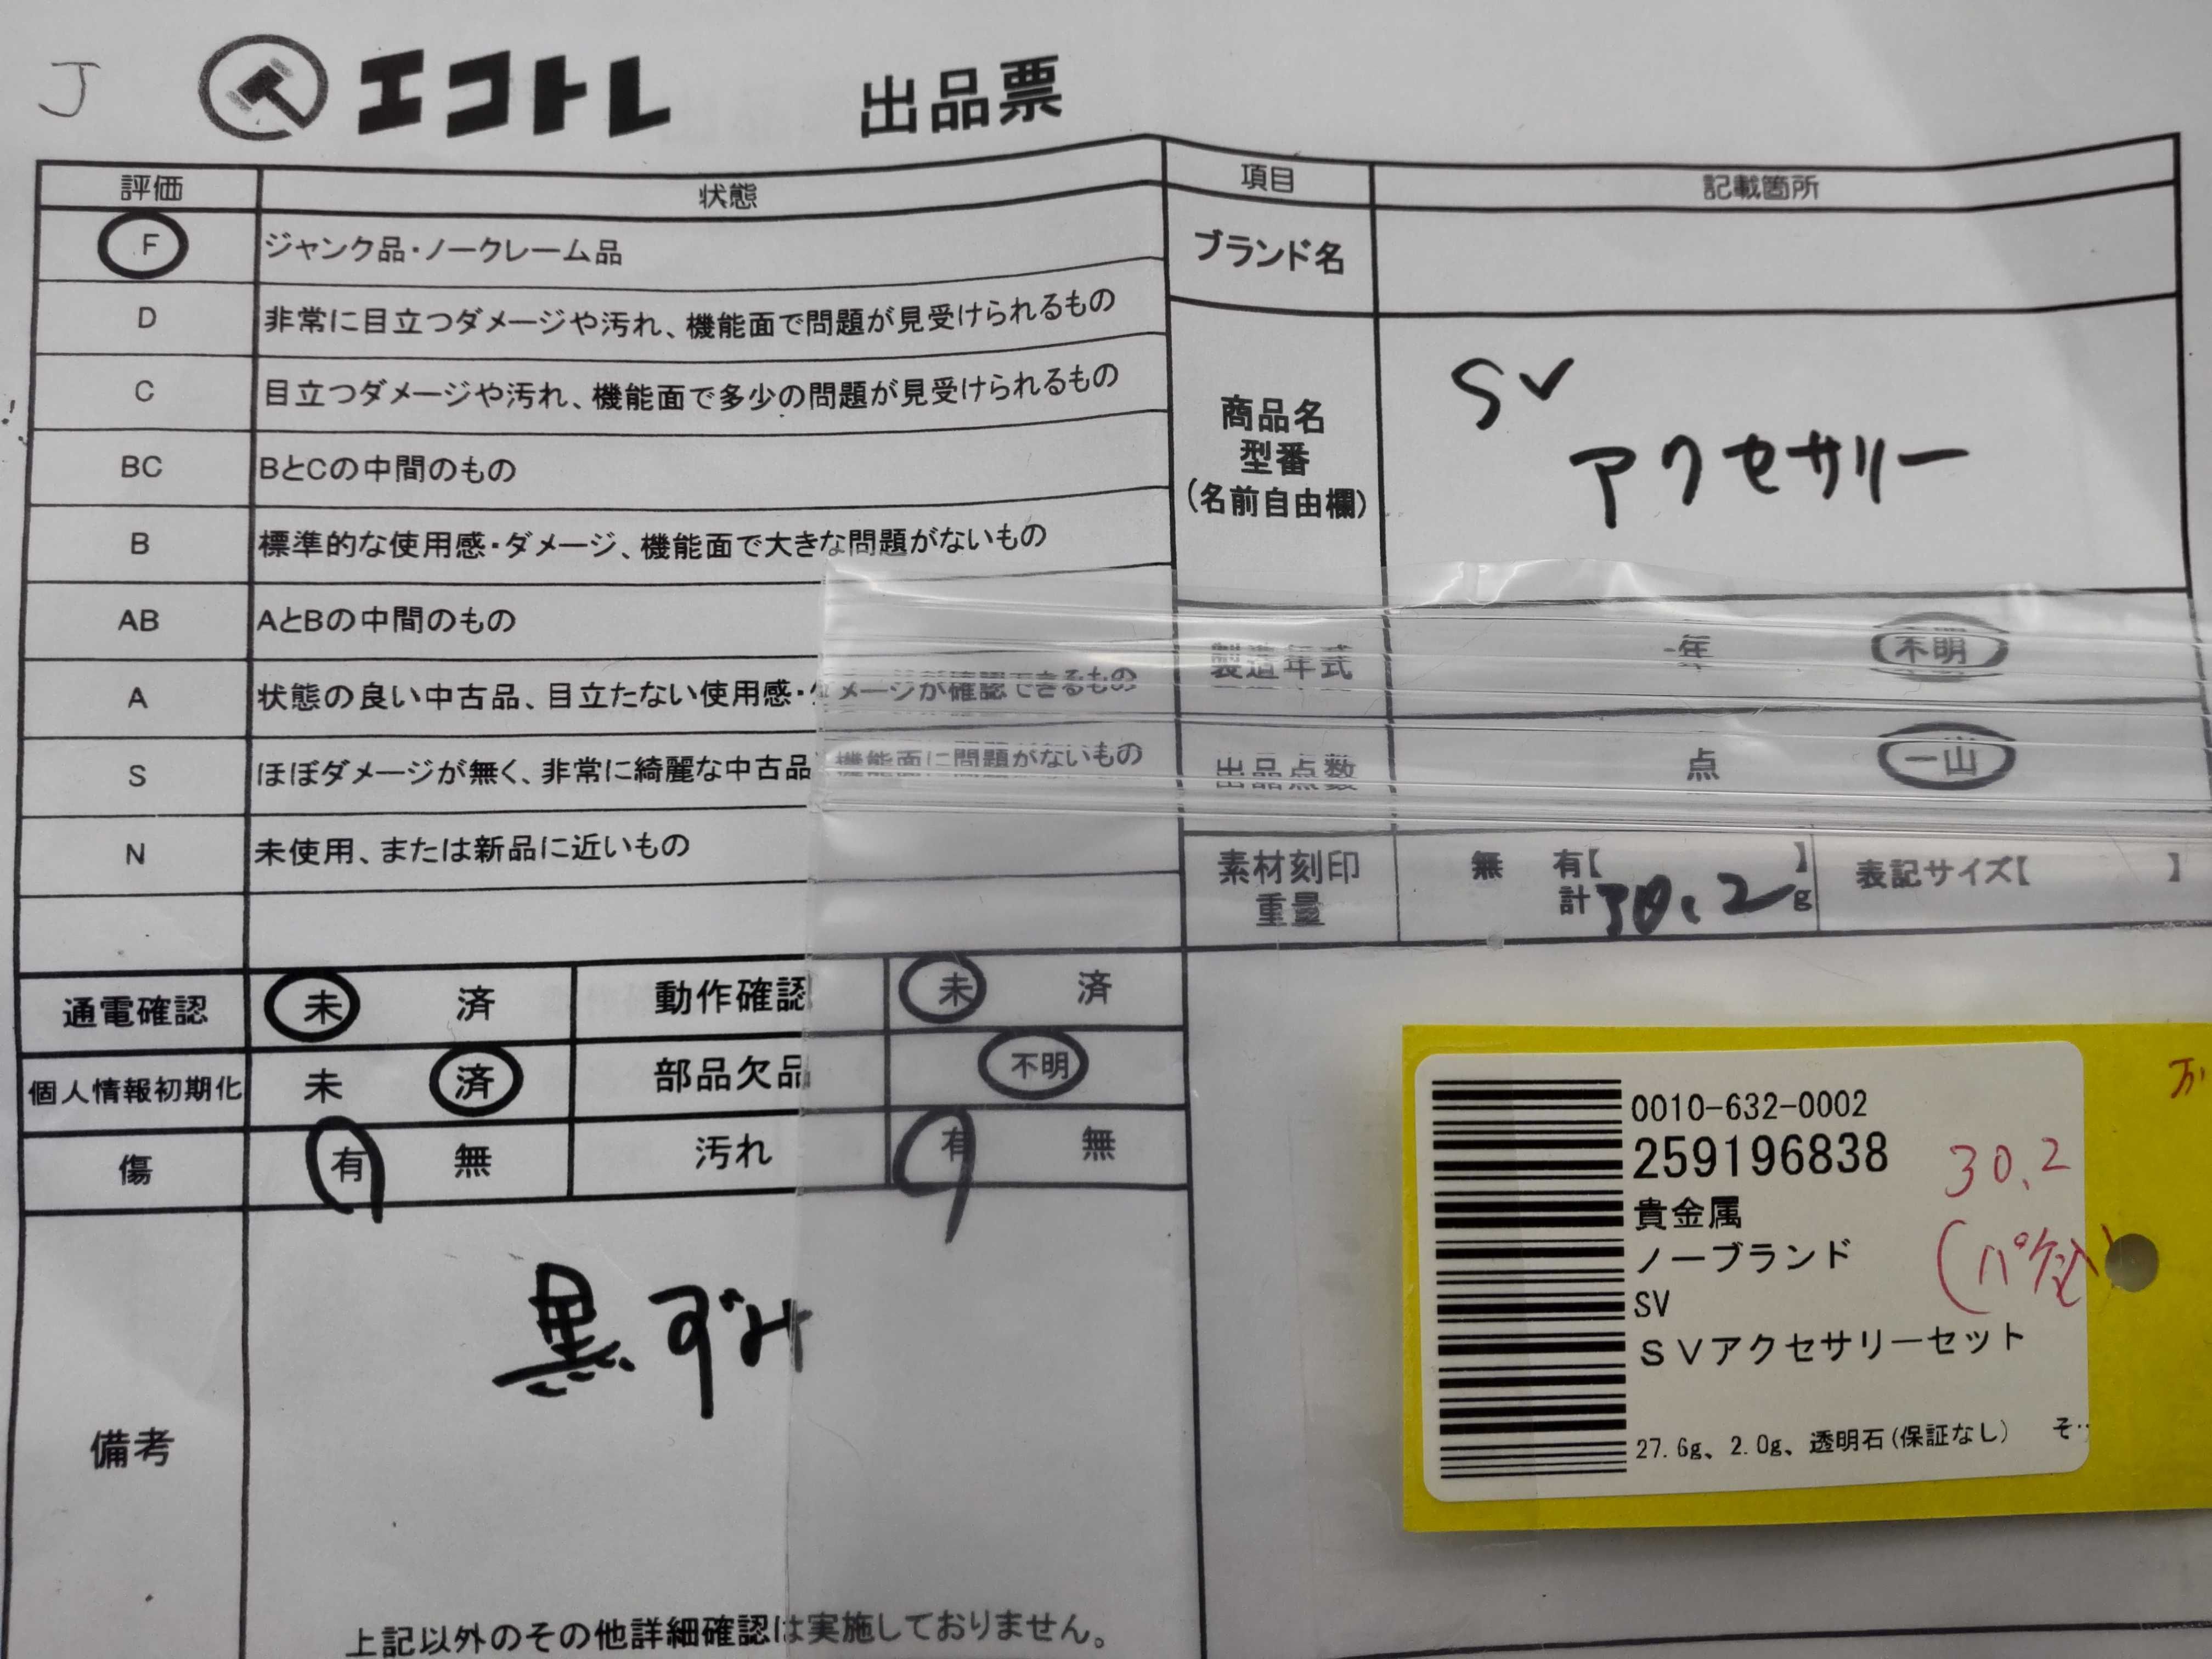 J
エコトレ 出品票
評価 状態
F ジャンク品・ノークレーム品
D 非常に目立つダメージや汚れ、機能面で問題が見受けられるもの
C 目立つダメージや汚れ、機能面で多少の問題が見受けられるもの
BC BとCの中間のもの
B 標準的な使用感・ダメージ、機能面で大きな問題がないもの
AB AとBの中間のもの
A 状態の良い中古品、目立たない使用感・ダメージが確認できるもの
S ほぼダメージが無く、非常に綺麗な中古品 機能面に問題がないもの
N 未使用、または新品に近いもの
項目 記載箇所
ブランド名
商品名
型番
(名前自由欄)
SV
アクセサリー
製造年式 年 不明
出品点数 点 一山
素材刻印
重量
無 有【 】
計 30.2 g
表記サイズ【 】
通電確認 未 済 動作確認 未 済
個人情報初期化 未 済 部品欠品 不明
傷 有 無 汚れ 有 無
備考
黒ずみ
上記以外のその他詳細確認は実施しておりません。
0010-632-0002
259196838
貴金属
ノーブランド
SV
SVアクセサリーセット
27.6g、2.0g、透明石(保証なし) そ‥
30.2